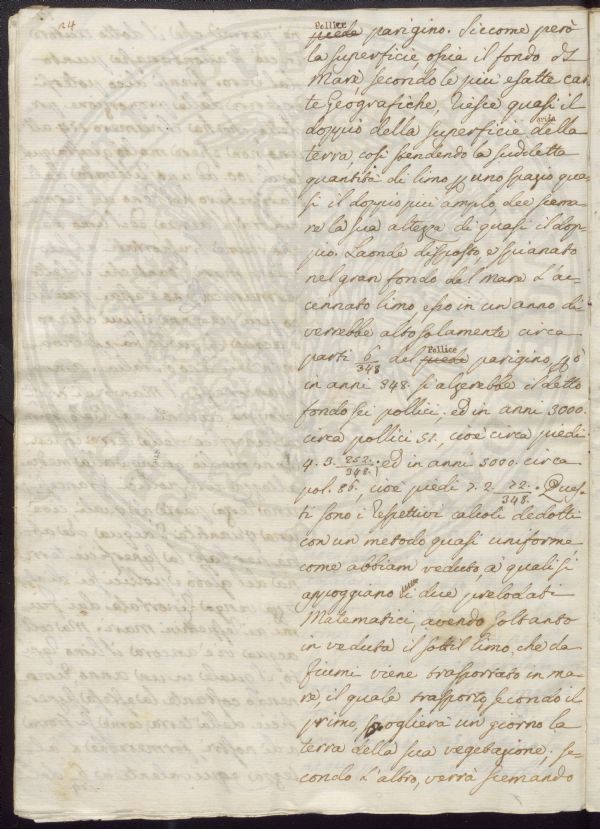 24
Pollice
piede parigino. Siccome però
la superficie ossia il fondo del
Mare, secondo le più esatte car-
te Geografiche, riesce quasi il
doppio della superficie arida della
terra, così stendendo la suddetta
quantità di limo p uno spazio qua-
si il doppio più amplo, dee scema-
re la sua altezza di quasi il dop-
pio. Laonde disposto, e spianato
nel gran fondo del mare l'ac-
cennato limo, esso in un anno di-
verrebbe alto solamente circa
parti 6/348 del piede Pollice parigino, p ò
in anni 348. si alzerebbe il detto
fondo sei pollici; ed in anni 3000.
circa pollici 51, cioè circa piedi
4. 3. 252/348.; ed in anni 5000. circa
pol. 86, cioè piedi 7. 2. 72/348. Ques-
ti sono i respettivi calcoli dedotti
con un metodo quasi uniforme,
come abbiam veduto, a' quali si
appoggiano li due prelodati
Matematici, avendo soltanto
in veduta il sottil limo, che da
fiumi viene trasportato in ma-
re, il quale trasporto, secondo il
primo, spoglierà un giorno la
terra della sua vegetazione; se-
condo l'altro, verrà scemando